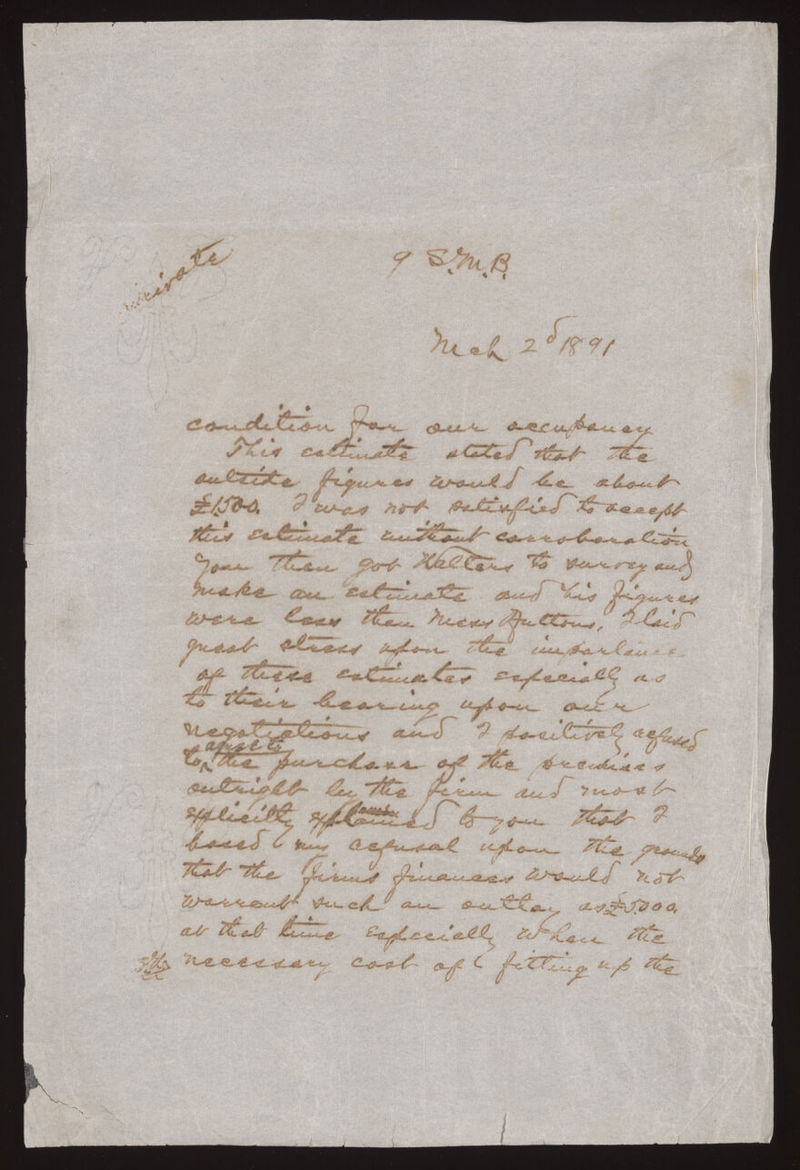 Private
9 S.M.B.
Mch 2d 1891
condition for our occupancy
This estimate stated that the
outside figures would be about
£1500. I was not satisfied to accept
this estimate without corroboration
You then got Walters to survey and
make an estimate and his figures
were less then Mess Huttons, I laid
great stress upon the importance
of these estimates especially as
to their bearing upon our
negotiations and I positively refused
to the purchase of the premises
outright by the firm and most
explicitly explained to you that I
based my refusal upon the grounds
that the firms finances would not
warrant such an outlay as £5000.
at that time especially when the
necessary cost of fitting up the